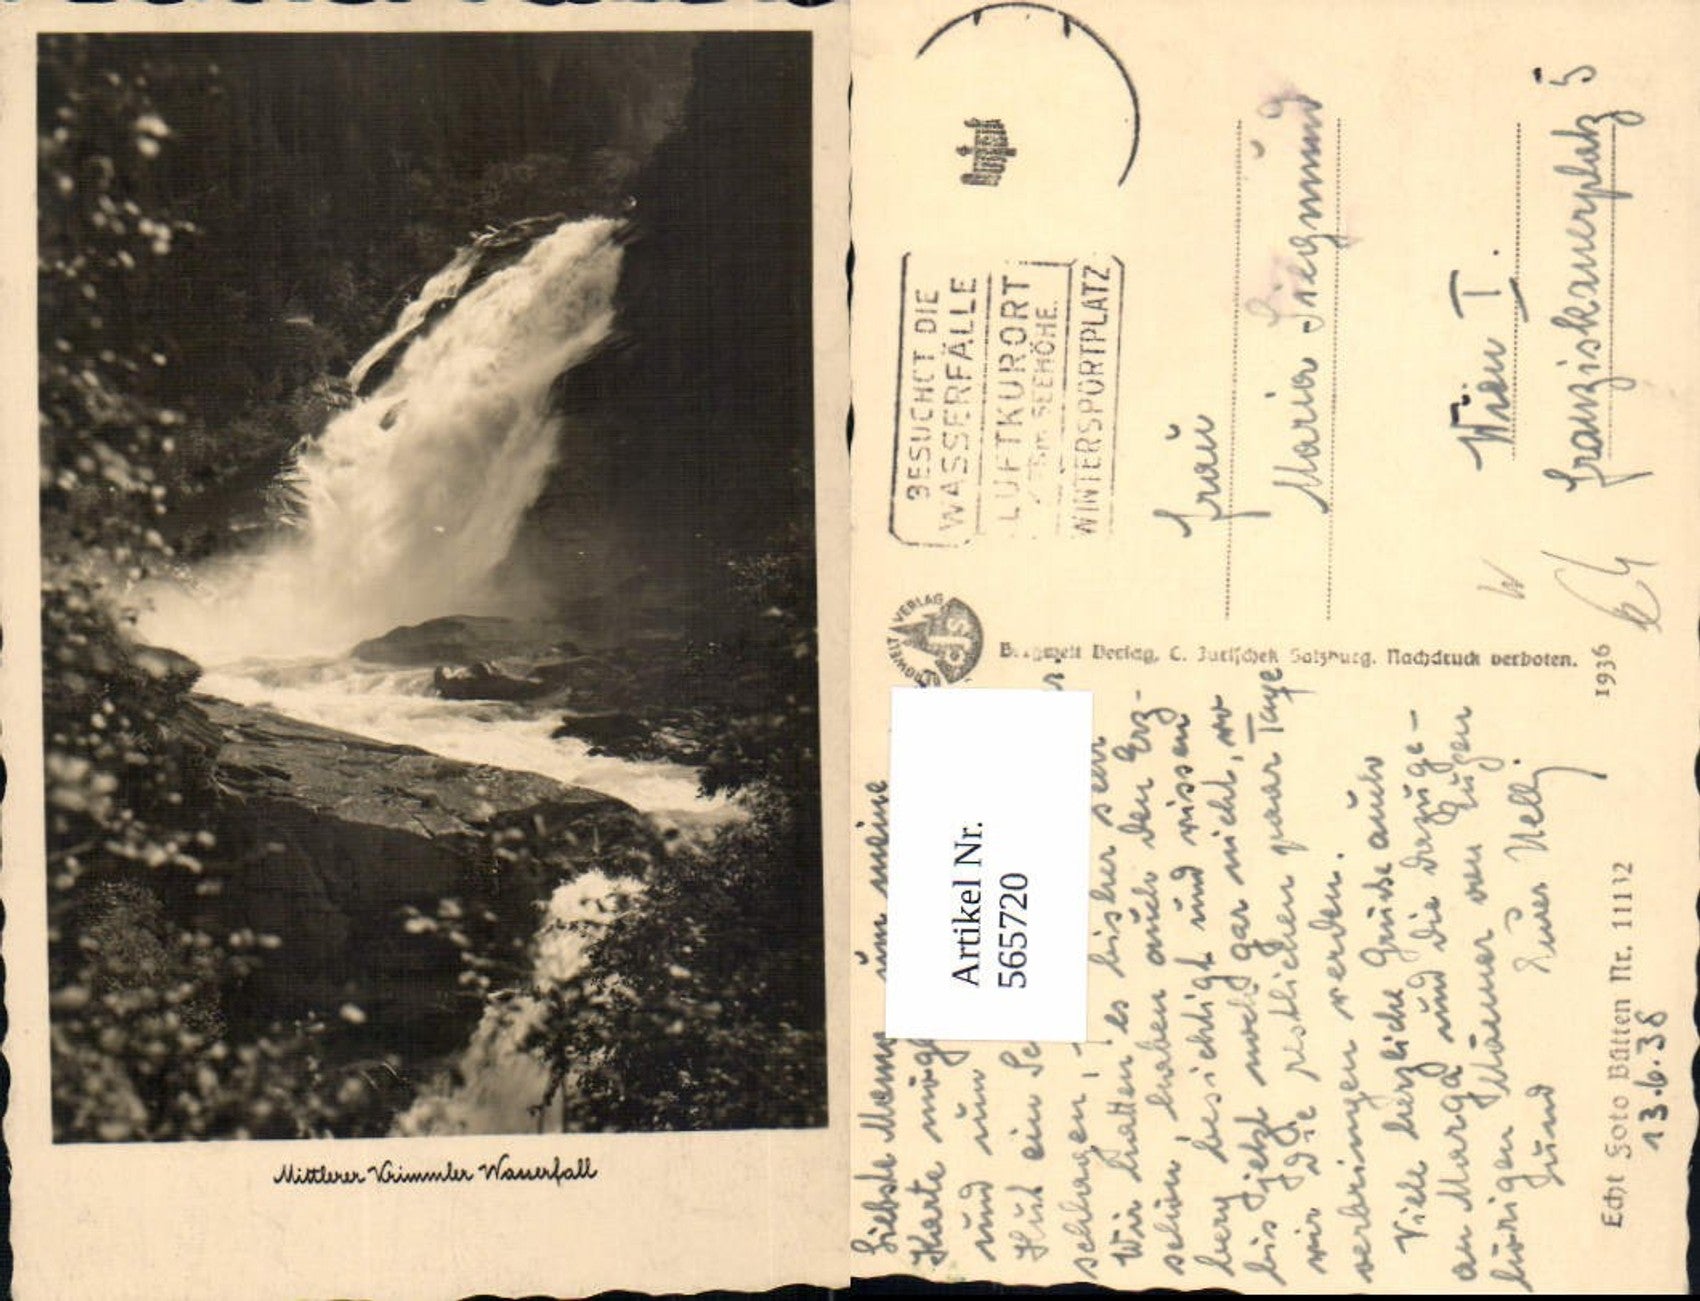 Mittlerer Krimmler Wasserfall
BESUCHT DIE
WASSERFÄLLE
LUFTKURORT
SEEHÖHE.
WINTERSPORTPLATZ
Frau
Maria Siegmund
Wien I.
Franziskanerplatz 5
VERLAG
Verlag, C. Jurischek Salzburg. Nachdruck verboten.
1936
Artikel Nr.
565720
Liebste Mama um meine
Karte
und nun
Hut ein
schlagen,
Wir hatten es bisher sehr
schön haben auch den Erz-
berg besichtigt und wissen
bis jetzt noch gar nicht, wo
wir die restlichen paar Tage
verbringen werden.
Viele herzliche Grüße auch
an Marga und die dazuge-
hörigen Männer von Eugen
und Eurer Nelly
Echt Foto Bütten Nr. 11112
13.6.38